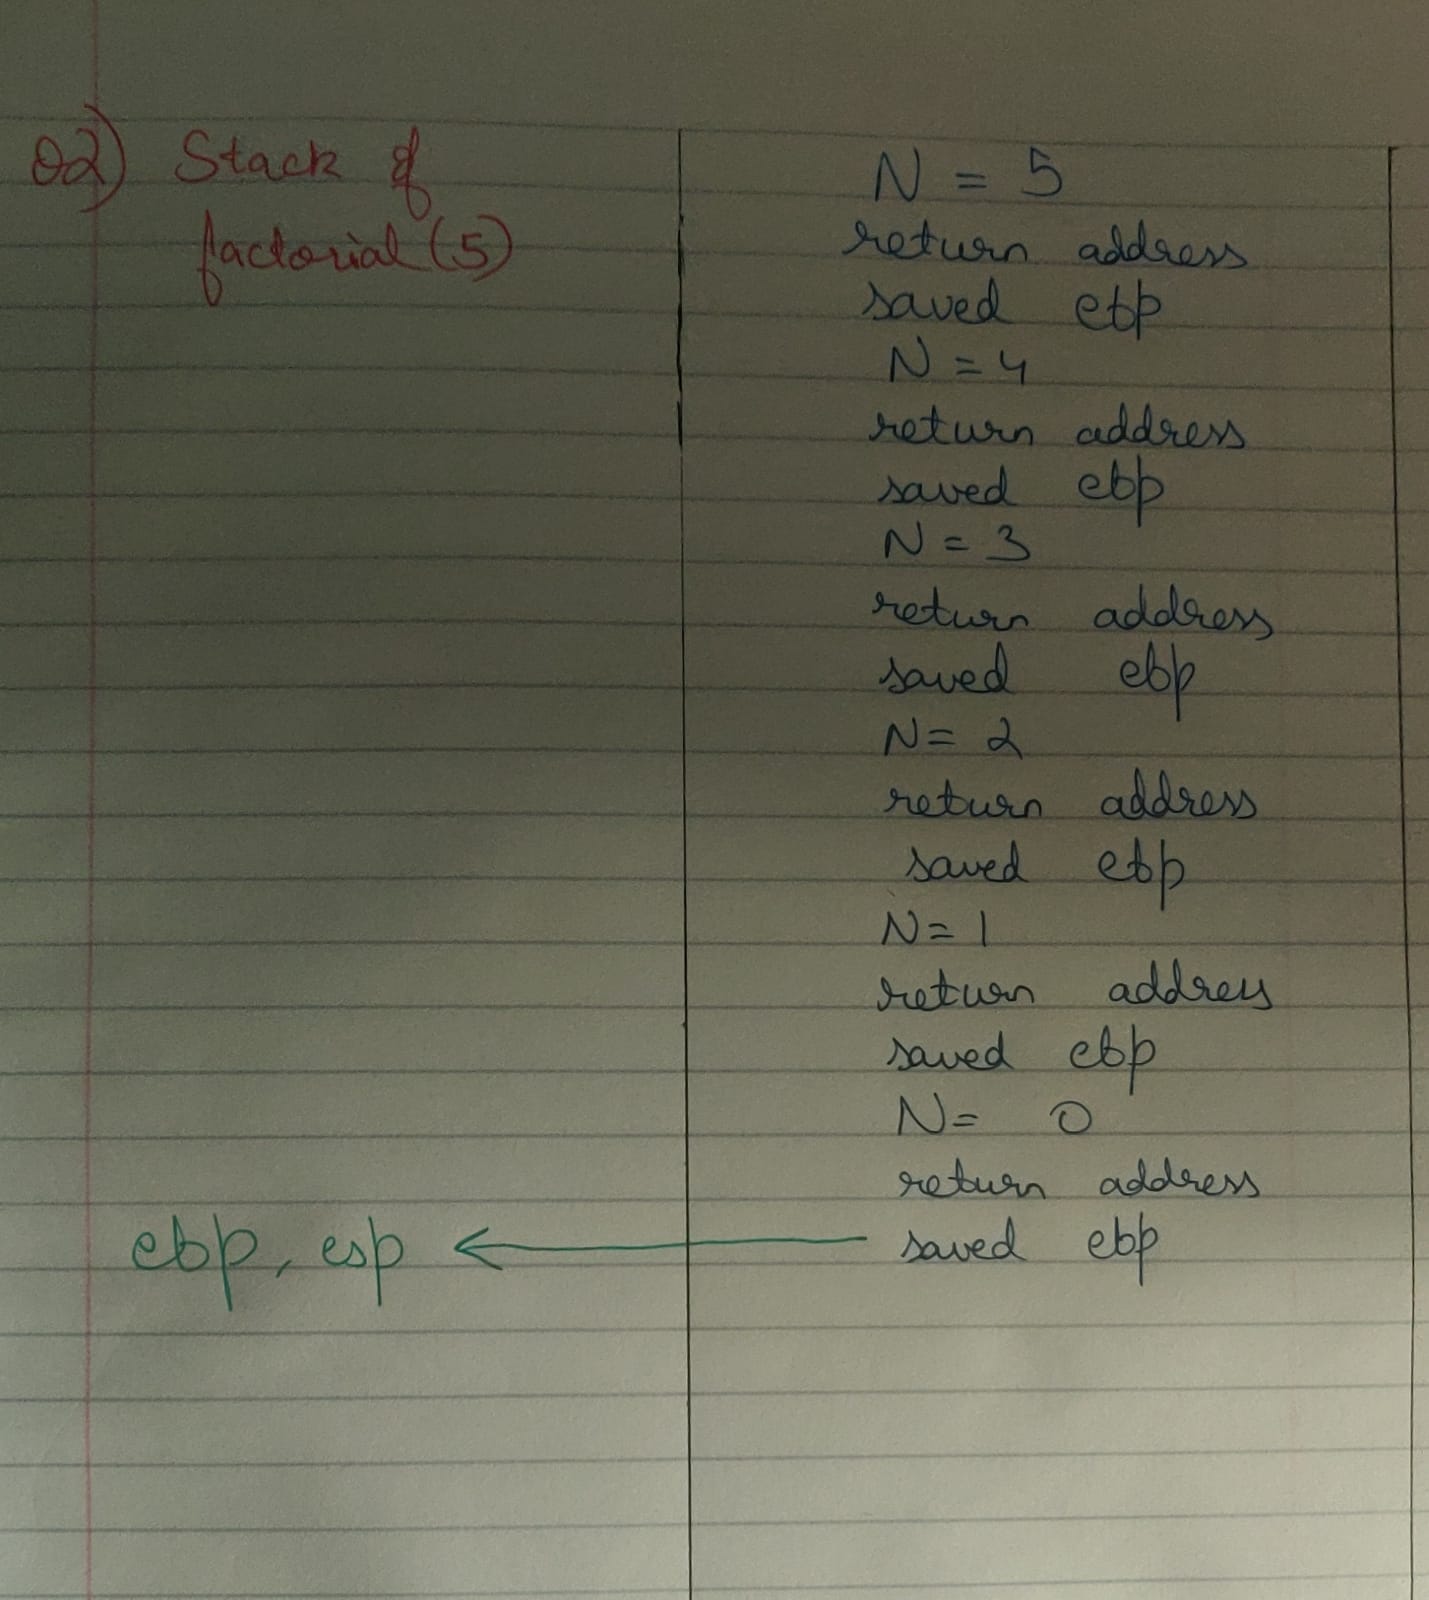 Q2) Stack of
factorial (5)
N = 5
return address
saved ebp
N = 4
return address
saved ebp
N = 3
return address
saved ebp
N = 2
return address
saved ebp
N = 1
return address
saved ebp
N = 0
return address
ebp, esp ← saved ebp